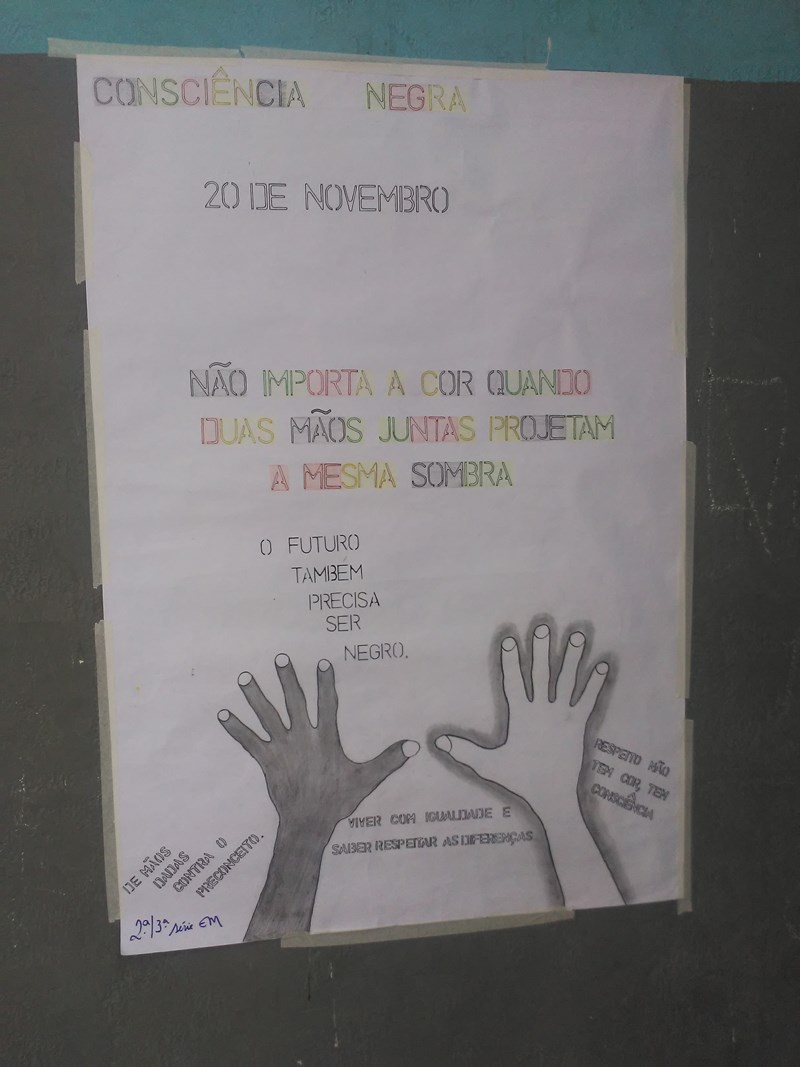 CONSCIÊNCIA NEGRA
20 DE NOVEMBRO
NÃO IMPORTA A COR QUANDO
DUAS MÃOS JUNTAS PROJETAM
A MESMA SOMBRA
O FUTURO
TAMBÉM
PRECISA
SER
NEGRO.
RESPEITO NÃO
TEM COR, TEM
CONSCIÊNCIA
VIVER COM IGUALDADE E
SABER RESPEITAR AS DIFERENÇAS
DE MÃOS
DADAS
CONTRA O
PRECONCEITO.
2ª/3ª série EM